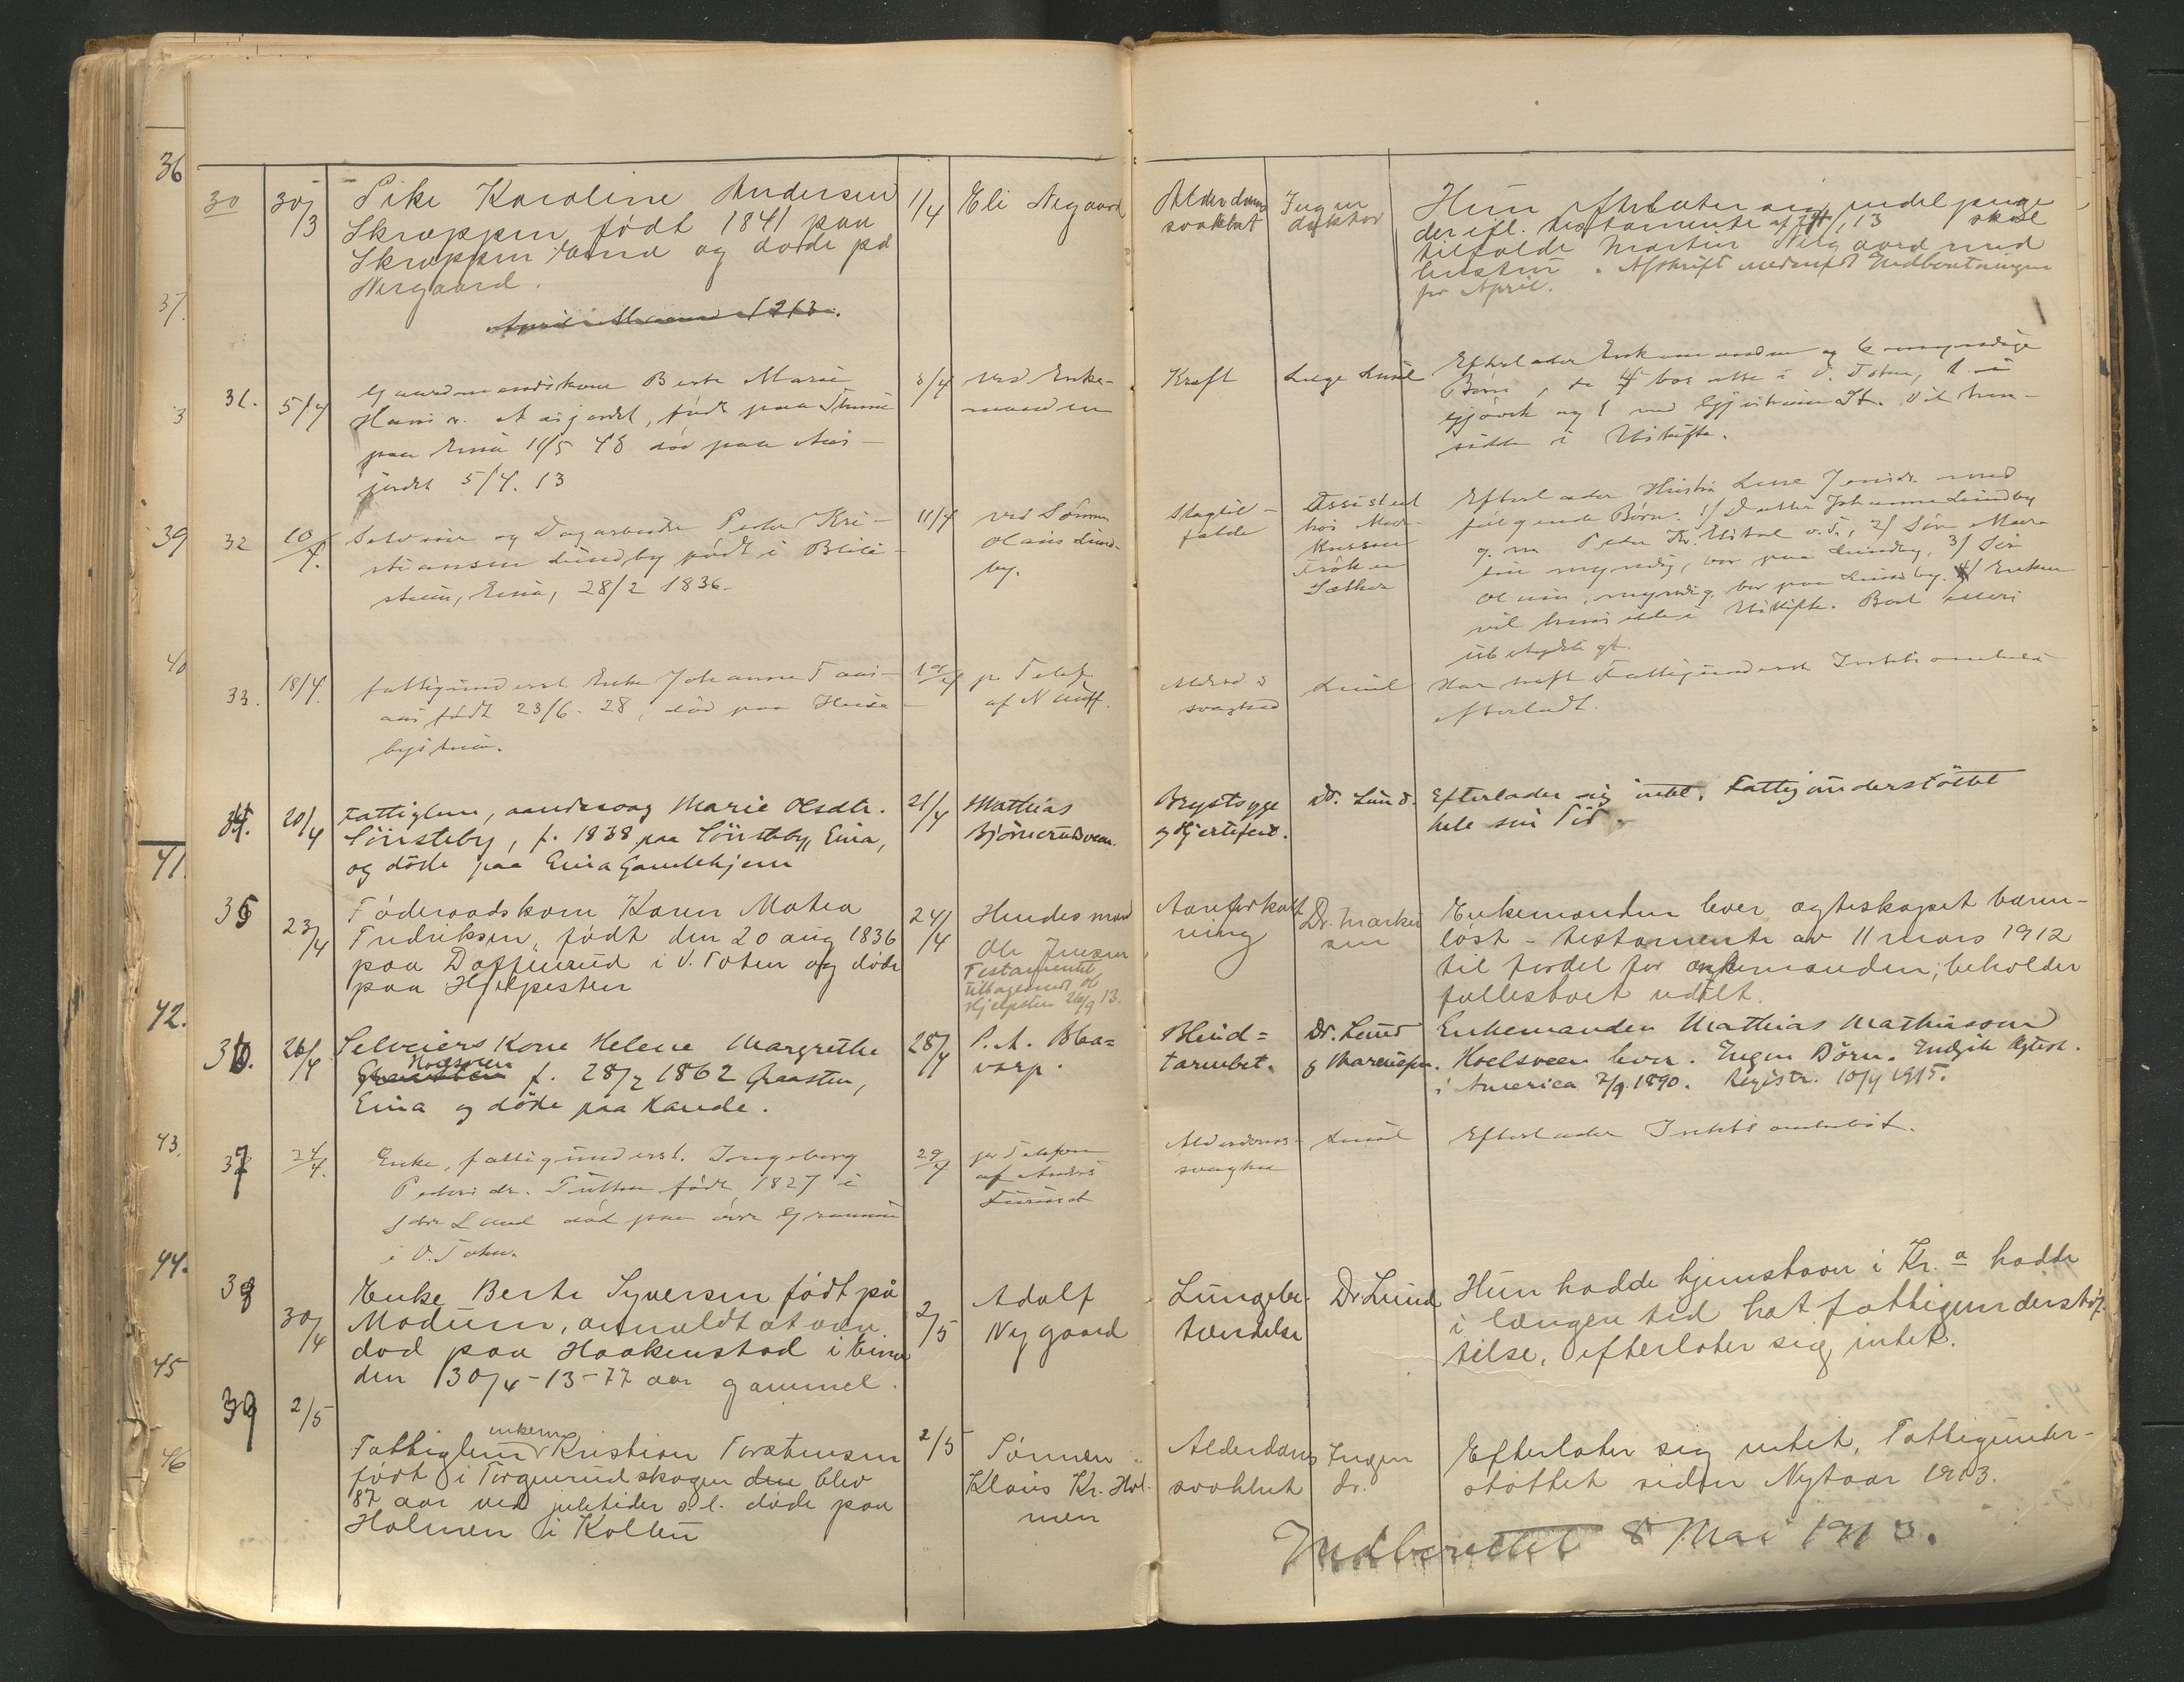 36
37.
3
39
40
41.
42.
43.
44.
45
46
30
30/3
Pike Karoline Andersen
Skrøppen født 1841 paa
Skrøppen Land og døde på
Nergaard.
11/4
Eli Negaard
Alderdoms
svakhet
Ingen
doktor
Hun efterlater sig endel penge
der ifl. testamente af /13 skal
tilfalde Martin Nergaard med
hustru. Afskrift medsendt Indberetningen
for April.
31.
5/4
Gaardmandskone Berte Marie
Hansdr. født paa
paa Eina 11/5 48 død paa
jordet 5/4. 13
8/4
ved Enke-
manden
Kræft
Læge Lund
Efterlader Enkemanden og 6 myndige
Børn, de 4 bor i V. Toten, 1 i
Gjøvik og 1 ved St. Vil hen-
sidde i Uskifte.
32
10/4.
Selveier og Dagarbeider Peder Kri-
stiansen Lundby født i Blili-
stein, Eina, 28/2 1836.
11/4
ved Sønnen
Olaus Lund-
by.
Slagtil-
fælde
Assisteret
hos Mar-
kussen
Frøken
Sæther
Efterlader Hustru Lene Jensdr. med
følgende Børn: 1/ Datter Johanne Lundby
g. m. Peder V. T., 2/ Søn Mar-
tin myndig, bor paa Lundby, 3/ Søn
Olaus, myndig, bor paa Lundby. 4/ Enken
vil hensidde i Uskifte. Boet
ubetydeligt.
33.
18/4.
Fattigunderst. Enke Johanne Taas-
aas født 23/6. 28, død paa Huse-
bystuen.
19/4
pr Telef.
af
Alderds
svaghed
Lund
Har havt Fattigunderst. Intetsomhelst
efterladt.
34.
20/4
Fattiglem, aandssvag Marie Olsdtr.
Sönsteby, f. 1838 paa Sönsteby, Eina,
og döde paa Eina Gamlehjem
21/4
Mathias
Björnerudsveen.
Brystsyge
og Hjertefeil.
Dr. Lund.
Efterlader sig intet. Fattigünderstöttet
hele sin Tid.
35
23/4
Föderaadskone Karen Matea
Fredriksen, født den 20 aug 1836
paa Daffinrud i V. Toten og döde
paa Hjelpesten
24/4
Hendes mand
Ole Jensen
Testamentet
tilbagesendt Ole
Hjelpsten 26/9 13.
Aareforkalk
ning
Dr. Marku
sen
Enkemanden lever ægteskapet barn-
löst – testamente av 11 mars 1912
til fordel for enkemanden; beholder
fællesboet udelt.
36.
26/4
Selveiers Kone Helene Margrethe
Hoelsveen
f. 28/2 1862 Graasten,
Eina og döde paa Kande.
28/4
P. A. Blaa=
varp.
Blind=
tarmbet.
Dr. Lund
og Marcussen.
Enkemanden Mathias Mathiassen
Hoelsveen lever. Ingen Børn. Indgik Ægtesk.
i America 2/9. 1890. Registr. 10/4 1915.
37
24/4.
Enke, fattigunderst. Ingeborg
Pedersdr. født 1827 i
Land død paa
i V. Toten.
29/4
pr Telefon
af Anders
Alderdoms-
svaghed
Lund
Efterlader Intetsomhelst.
38
30/4
Enke Berte Syversen født på
Modum, anmeldt at være
død paa Haakenstad i Eina
den 30/4-13-77 aar gammel.
2/5
Adolf
Nygaard
Lungebe-
tændelse
Dr. Lund
Hun hadde hjemstavn i Kr.a hadde
i længere tid hat fattigunderstöt-
telse, efterlater sig intet.
39
2/5
enkem.
Fattiglem Kristian Torstensen
født i Torgerudskogen den blev
87 aar ved juletider s. l. døde paa
Holmen i Kolbu
2/5
Sönnen
Klaus Kr. Hol-
men
Alderdoms
svakhet
Ingen
dr.
Efterlater sig intet, Fattigunder-
støttet siden Nytaar 1903.
Indberettet 8 Mai 1913.